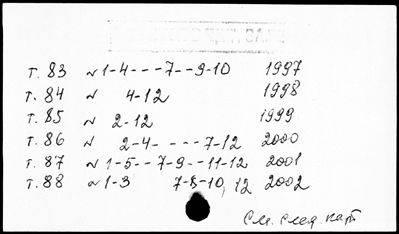 т. 83 N 1-4---7--9-10 1997
т. 84 N 4-12 1998
т. 85 N 2-12 1999
т. 86 N 2-4-----7-12 2000
т. 87 N 1-5--7-9--11-12 2001
т. 88 N 1-3 7-8-10, 12 2002
См. след. карт